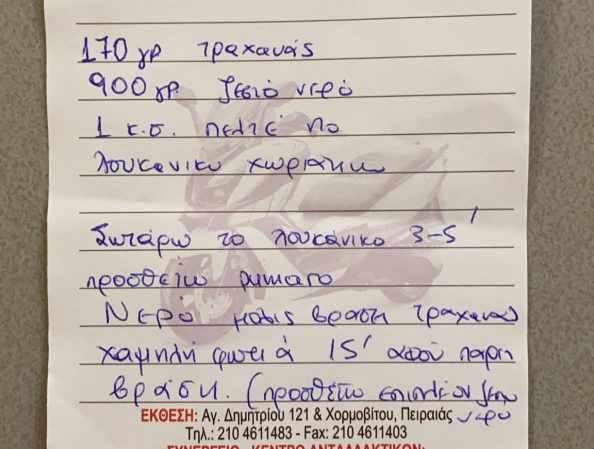 170 γρ τραχανάς
900 γρ. ζεστό νερό
1 κ.σ. πελτέ ντο
λουκάνικο χωριάτικο
Σωτάρω το λουκάνικο 3-5'
προσθέτω ντοματο
Νερό μόλις βράση τραχανα
χαμηλή φωτιά 15' αφού παρη
βράση. (προσθέτω επιπλέον ζεστο
νερο
ΕΚΘΕΣΗ: Αγ. Δημητρίου 121 & Χορμοβίτου, Πειραιάς
Τηλ.: 210 4611483 - Fax: 210 4611403
ΣΥΝΕΡΓΕΙΟ - ΚΕΝΤΡΟ ΑΝΤΑΛΛΑΚΤΙΚΩΝ: